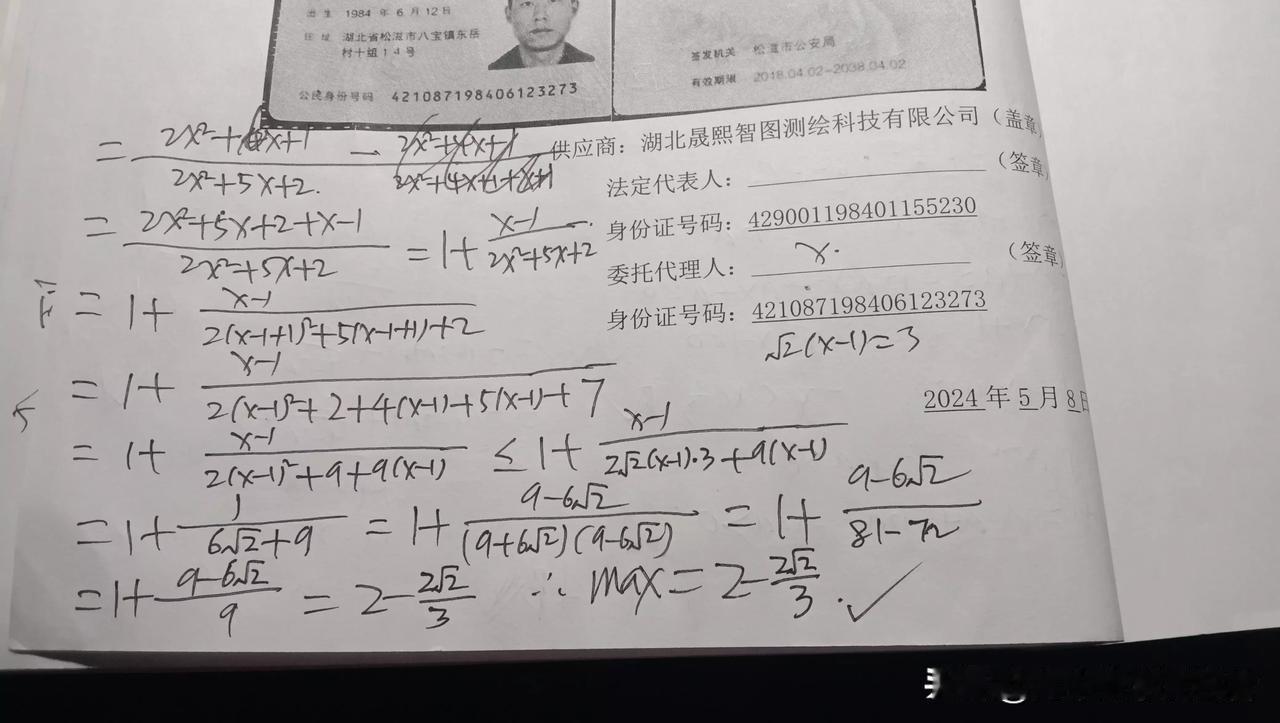 出生 1984 年 6 月 12 日
住址 湖北省松滋市八宝镇东岳
村十组14号
公民身份号码 421087198406123273
签发机关 松滋市公安局
有效期限 2018.04.02-2038.04.02
供应商：湖北晟熙智图测绘科技有限公司（盖章
法定代表人：（签章
身份证号码：429001198401155230
委托代理人： x.（签章
身份证号码：421087198406123273
√2(x-1)=3
2024 年 5 月 8 日
= (2x²+6x+1)/(2x²+5x+2)
= (2x²+5x+2+x-1)/(2x²+5x+2) = 1+ (x-1)/(2x²+5x+2)
= 1+ (x-1)/(2(x-1+1)²+5(x-1+1)+2)
= 1+ (x-1)/(2(x-1)²+2+4(x-1)+5(x-1)+7)
= 1+ (x-1)/(2(x-1)²+9+9(x-1)) ≤ 1+ (x-1)/(2√2(x-1)·3+9(x-1))
=1+ 1/(6√2+9) = 1+ (9-6√2)/((9+6√2)(9-6√2)) = 1+ (9-6√2)/(81-72)
=1+ (9-6√2)/9 = 2- 2√2/3 ∴ max=2- 2√2/3.